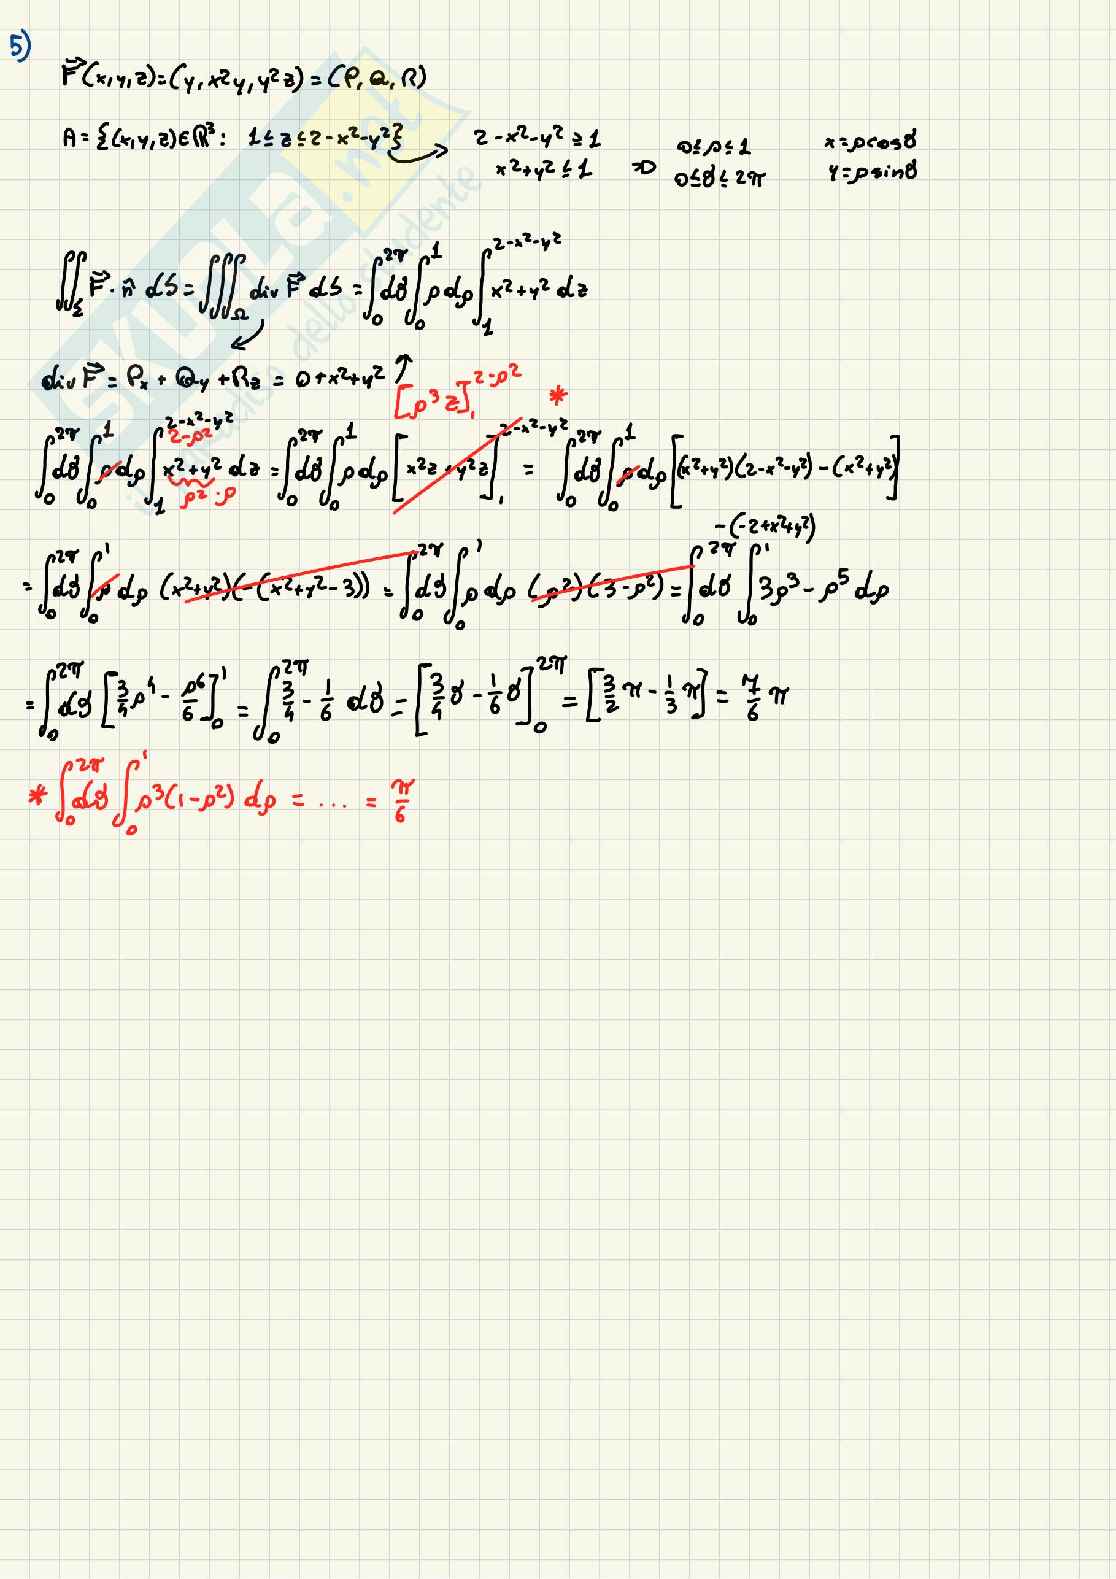 5)
F⃗(x,y,z)=(y, x²y, y²z)=(P, Q, R)
A={(x,y,z)∈ℝ³: 1≤z≤2-x²-y²} → 2-x²-y²≥1 0≤ρ≤1 x=ρcosϑ
x²+y²≤1 ⇒ 0≤ϑ≤2π y=ρsinϑ
∬_Σ F⃗·n̂ dS = ∭_Ω div F⃗ dS = ∫₀^{2π} dϑ ∫₀^1 ρ dρ ∫₁^{2-x²-y²} x²+y² dz
div F⃗ = Px + Qy + Rz = 0+x²+y²
[ρ³z]₁^{2-ρ²} *
∫₀^{2π} dϑ ∫₀^1 ρ dρ ∫₁^{2-x²-y²} x²+y² dz = ∫₀^{2π} dϑ ∫₀^1 ρ dρ [x²z+y²z]₁^{2-x²-y²} = ∫₀^{2π} dϑ ∫₀^1 ρ dρ [(x²+y²)(2-x²-y²)-(x²+y²)]
2-ρ²
ρ²·ρ
-(-2+x²+y²)
= ∫₀^{2π} dϑ ∫₀^1 ρ dρ (x²+y²)(-(x²+y²-3)) = ∫₀^{2π} dϑ ∫₀^1 ρ dρ (ρ²)(3-ρ²) = ∫₀^{2π} dϑ ∫₀^1 3ρ³-ρ⁵ dρ
= ∫₀^{2π} dϑ [3/4 ρ⁴ - ρ⁶/6]₀^1 = ∫₀^{2π} 3/4 - 1/6 dϑ = [3/4 ϑ - 1/6 ϑ]₀^{2π} = [3/2 π - 1/3 π] = 7/6 π
* ∫₀^{2π} dϑ ∫₀^1 ρ³(1-ρ²) dρ = ... = π/6
SKUOLA.net